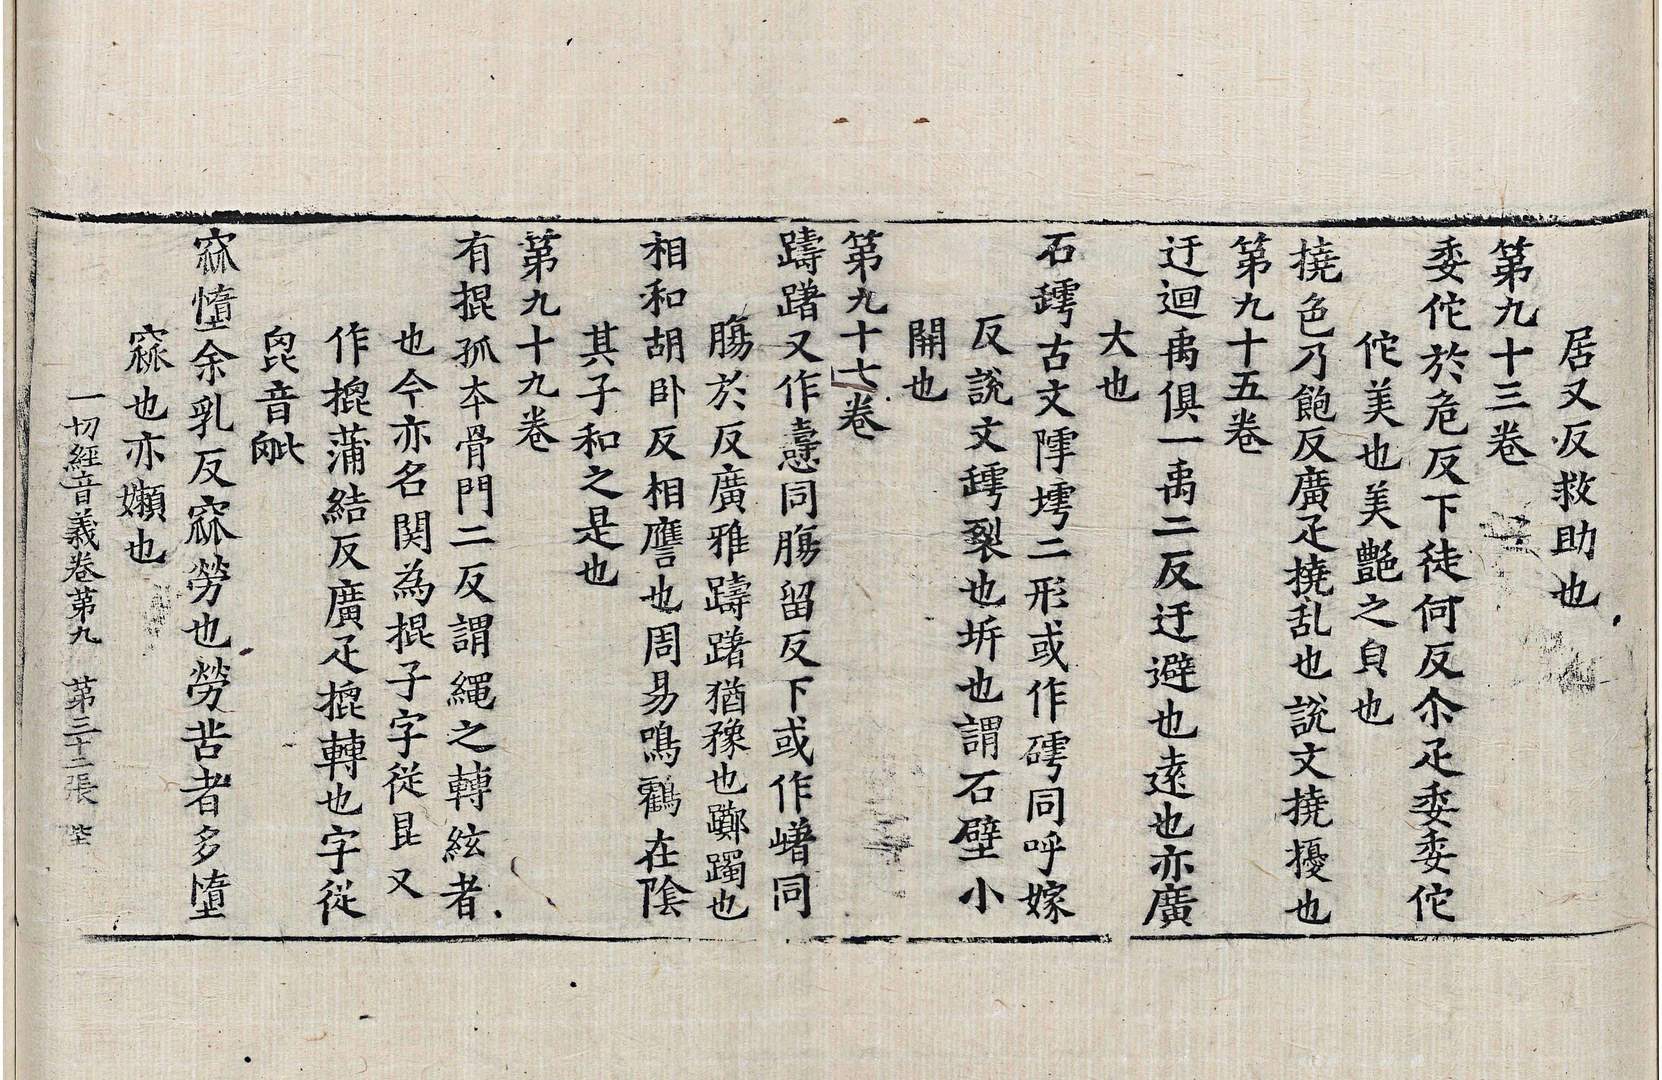 居又反救助也
第九十三卷
委佗於危反下徒何反尒疋委委佗
佗美也美艷之皃也
撓色乃飽反廣疋撓乱也說文撓擾也
第九十五卷
迂迴禹俱一禹二反迂避也遠也亦廣
大也
石罅古文㙤墟二形或作礴同呼嫁
反說文罅裂也坼也謂石壁小
開也
第九十七卷
躊躇又作𢣊同腸留反下或作㠜同
腸於反廣雅躊躇猶豫也躑躅也
相和胡卧反相譍也周易鳴鸖在陰
其子和之是也
第九十九卷
有掍孤夲骨門二反謂繩之轉絃者
也今亦名関為掍子字従昆又
作㨽蒲結反廣疋㨽轉也字従
㲋音㲋
窳惰余乳反窳勞也勞苦者多惰
窳也亦嬾也
一切經音義卷第九 第三十二張